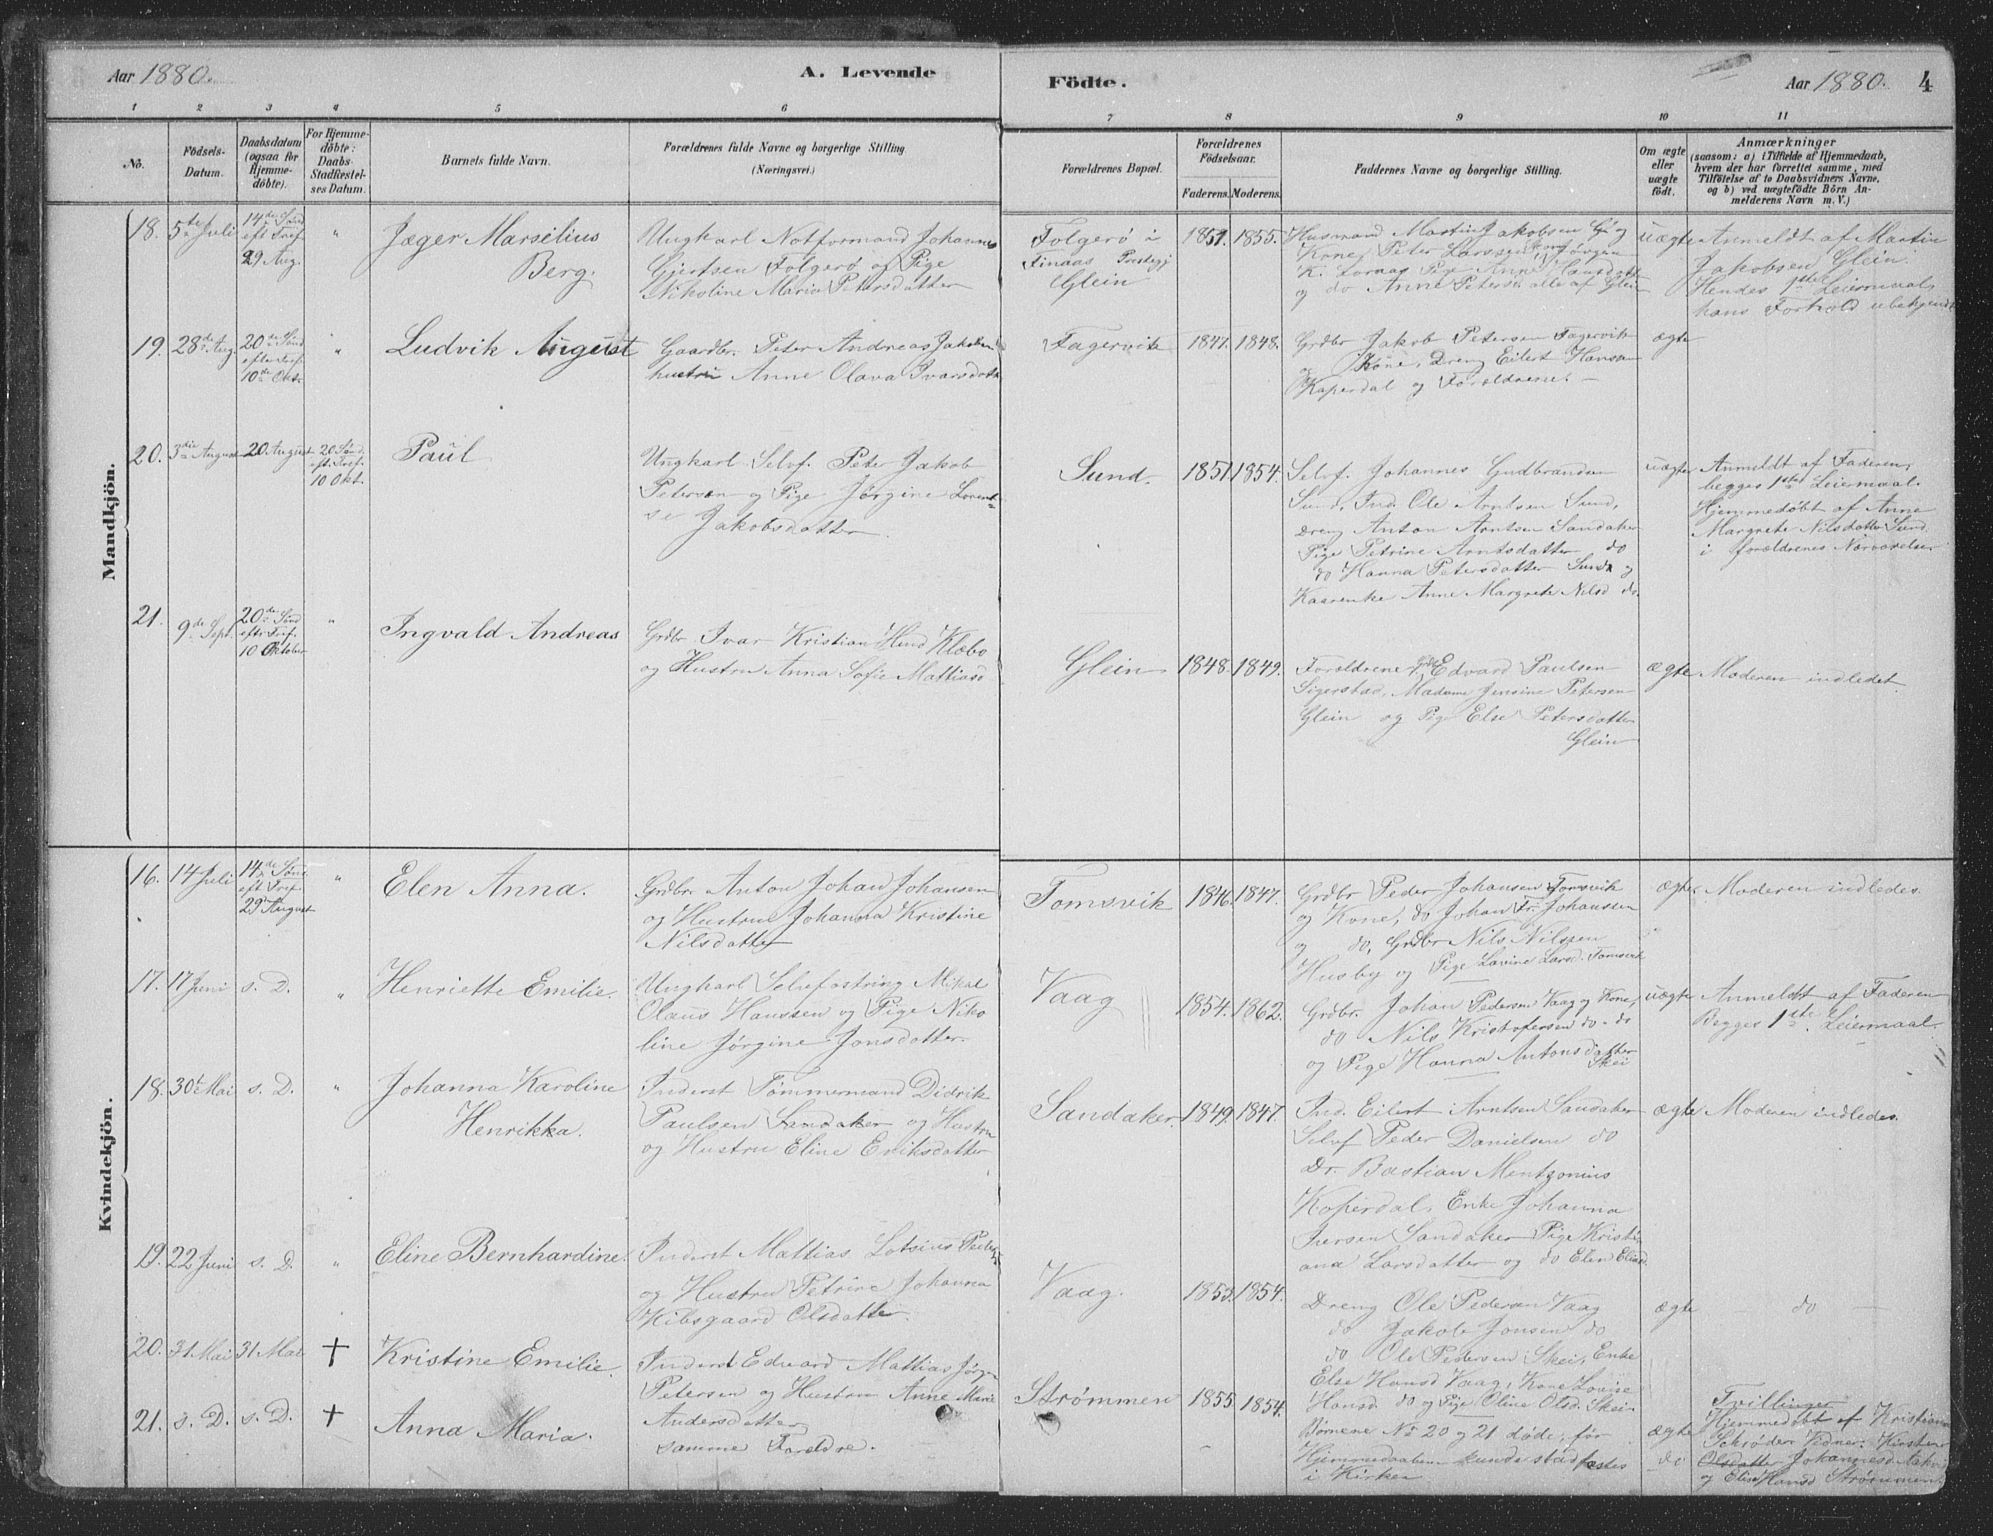 Aar 1880.
A. Levende
Födte.
Aar 1880.
4
1 2 3 4 5 6 7 8 9 10 11
No.
Födsels-
Datum.
Daabsdatum
(ogsaa for
Hjemme-
döbte).
For Hjemme-
döbte:
Daabs-
Stadfæstel-
ses Datum.
Barnets fulde Navn.
Forældrenes fulde Navne og borgerlige Stilling.
(Næringsvei.)
Forældrenes Bopæl.
Forældrenes
Födselsaar.
Faderens.
Moderens.
Faddernes Navne og borgerlige Stilling.
Om ægte
eller
uægte
födt.
Anmærkninger
(saasom: a) i Tilfælde af Hjemmedaab,
hvem der har forrettet samme, med
Tilföielse af to Daabsvidners Navne,
og b) ved uægtefödte Börn An-
melderens Navn m. V.)
Mandkjön.
18. 5te Juli
14de Sønd
eft Tref.
29 Aug.
"
Jæger Marselius
Berg.
Ungkarl Notformand Johannes
Gjertsen Folgerø og Pige
Nikoline Maria Petersdatter
Folgerö i
Finaas Prstegj
Glein
1851. 1855.
Husmand Martin Jakobsen Gl og
Kone, Peter Larssen, Jørgen
K. Pige Anne
og do Anne Peters. alle af Glein
uægte
Anmeldt af Martin
Jakobsen Glein.
Hendes 1ste Leiermaal,
hans Forhold ubekjendt
19. 28de Aug.
20de Sønd
efter Tref.
10de Oktr
"
Ludvik August
Gaardbr. Peter Andreas Jakobsen
hustru Anne Olava Ivarsdatter
Fagervik
1847. 1848.
Grdbr Jakob Petersen Fagervik
og Kone, Dreng Eilert Hansen
Koperdal og Forældrene. —
ægte
20. 3die August
20 August
20 Sønd.
eft. Tref.
10 Okt.
Paul
Ungkarl Selvf. Peter Jakob
Petersen og Pige Jørgine Loren-
se Jakobsdatter.
Sund.
1851. 1854.
Selvf. Johannes Gudbrandsen
Sund, Ind. Ole Arntsen Sund,
Dreng Anton Arntsen Sandaker
Pige Petrine Arntsdatter do
do Hanna Petersdatter Sund og
Kaarenke Anne Margrete Nilsd do.
uægte
Anmeldt af Faderen,
begges 1ste Leiermaal.
Hjemmedøbt af Anne
Margrete Nilsdatter Sund
i forældrenes Nærværelse.
21. 9de Sept.
20de Sønd
eftr Tref.
10 Oktober
"
Ingvald Andreas
Grdbr Ivar Kristian Hind Klæbo
og Hustru Anna Sofie Mattiasd
Glein
1848. 1849.
Forældrene, Edvard Paulsen
Sigerstad, Madame Jensine Petersen
Glein og Pige Else Petersdatter
Glein
ægte
Moderen indledet.
Kvindekjön.
16. 14 Juli
14de Sønd
eft Tref
29 August
"
Elen Anna.
Grdbr. Anton Johan Johansen
og Hustru Johanna Kristine
Nilsdatter
Tomsvik
1846. 1847.
Grdbr Peder Johansen Tomsvik
og Kone, do Johan Fr. Johanssen
og do, Grdbr Nils Nilssen
Husby og Pige Lovine Larsd. Tomsvik
ægte
Moderen indledes.
17. 17 Juni s. D. "
Henriette Emilie.
Ungkarl Selvfostring Mikal
Olaus Hanssen og Pige Niko
line Jørgine Jonsdatter.
Vaag
1854. 1862.
Grdbr. Johan Pedersen Vaag og Kone,
do Nils Kristofersen do. do
og Pige Hanna Antonsdatter
Skei
uægte
Anmeldt af Faderen
Begges 1ste Leiermaal.
18. 30te Mai s. D. "
Johanna Karoline
Henrikka.
Inderst Tömmermand Didrik
Paulsen Sandaker og Hustru
og Hustru Eline Eriksdatter
Sandaker.
1849. 1847.
Ind. Eilert Arntsen Sandaker
Selvf Peder Danielsen do
Dr. Bastian Mentzonius
Koperdal, Enke Johanna
Iversen Sandaker Pige Kristi
ana Larsdatter og do Elen Eliasd.
ægte
Moderen indledes.
19. 22 Juni s. D. "
Eline Bernhardine.
Inderst Mattias Lotsius Peders
og Hustru Petrine Johanna
Kibsgaard Olsdatter
Vaag.
1853. 1854.
Dreng Ole Pedersen Vaag
do Jakob Jonsen do
do Ole Pedersen Skei, Enke
Else Hansd Vaag, Kone Lovise
Hansd do og Pige Oline Olsd. Skei.
ægte
do —
20. 31 Mai 31 Mai †
Kristine Emilie.
Inderst Edvard Mattias Jörg-
Petersen og Hustru Anne Marie
Andersdatter
Strømmen
1855. 1854.
Børnene No 20 og 21 døde, før
Hjemmedaaben kunde stadfæstes
i Kirken
ægte
Tvillinger
Hjemmedöbt af Kristiane
Vidner: Kirsten
Olsdatter Johannesd
og Eline Hansd Strömmen
21. s. D. s. D. †
Anna Maria.
samme Foreldre.
do